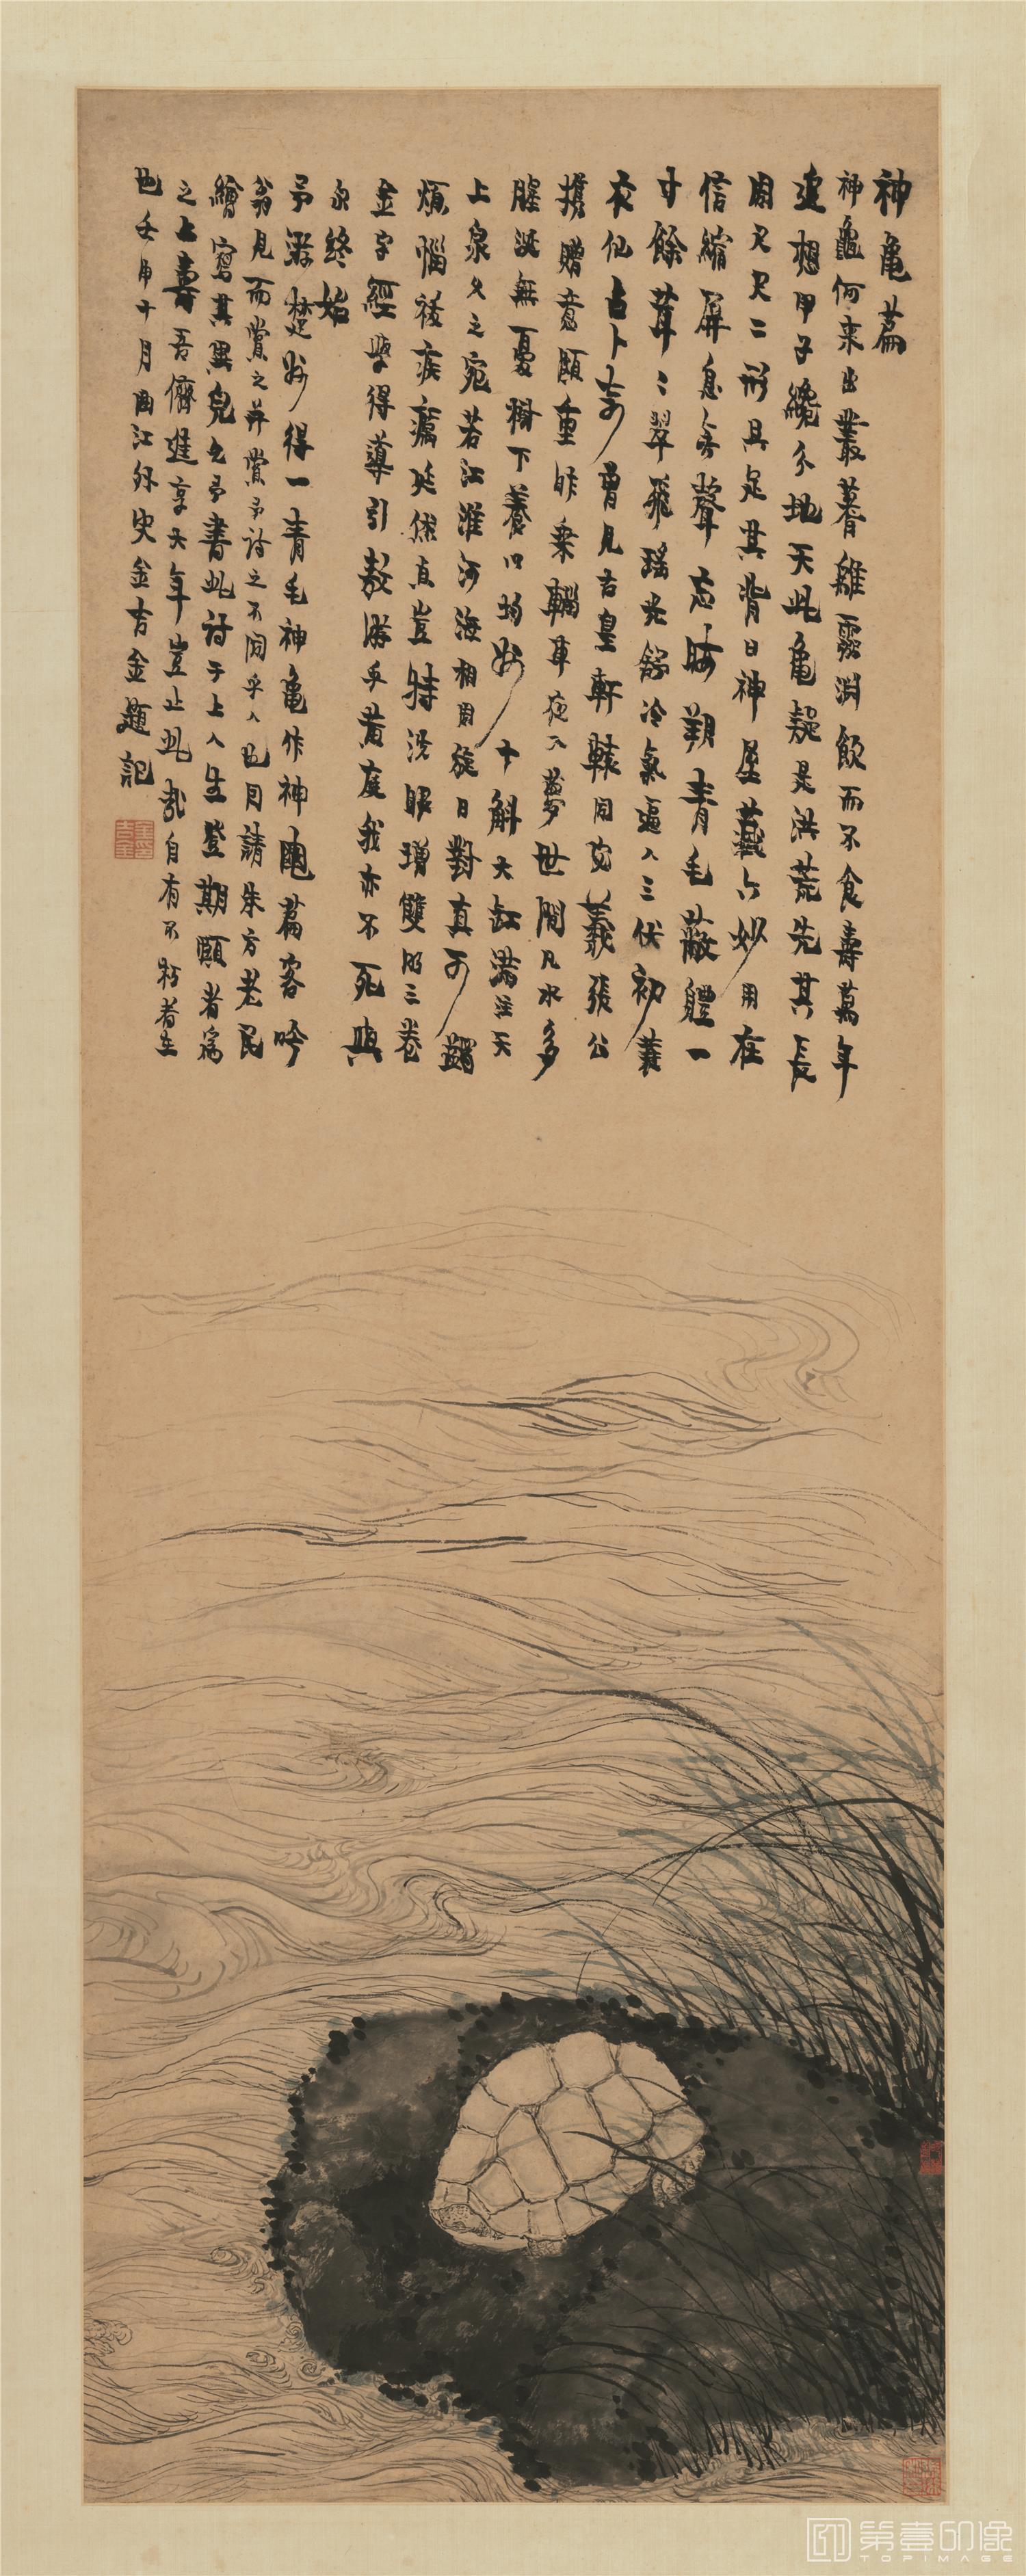 神龜篇
神龜何来出叢蓍離靈淵飲而不食壽萬年
連想甲子纔分地天此龜疑是洪荒先其長
周尺尺二形具足其背曰神屋藏六妙用在
信縮屏息吞聲忘晦朔青毛蔽軆一
寸餘茸〻翠飛瑤光錦冷氣逼人三伏初蓑
衣仙古卜奇曾見古皇軒轅同宓羲張公
攜贈意頗重昨乘輜車夜入夢世間凡水多
腥涎無憂樹下養以均州十斛大缸滿注天
上泉久之宛若江淮河海相周旋日對真可蠲
煩惱祛疾癘延佛直豈特洗眼增雙明三卷
金字經學得導引教游乎黄庭我亦不死與
永終始
予游楚州得一青毛神龜作神龜篇客吟
翁見而賞之并賞予詩之不同乎人也因請朱方老民
繪寫其異皃乞予書此詩于上人生登期頤者為
之上壽吾儕進享大年豈止此哉自有不朽者在
也壬申十月曲江外史金吉金題記
第壹印像
TOPIMAGE